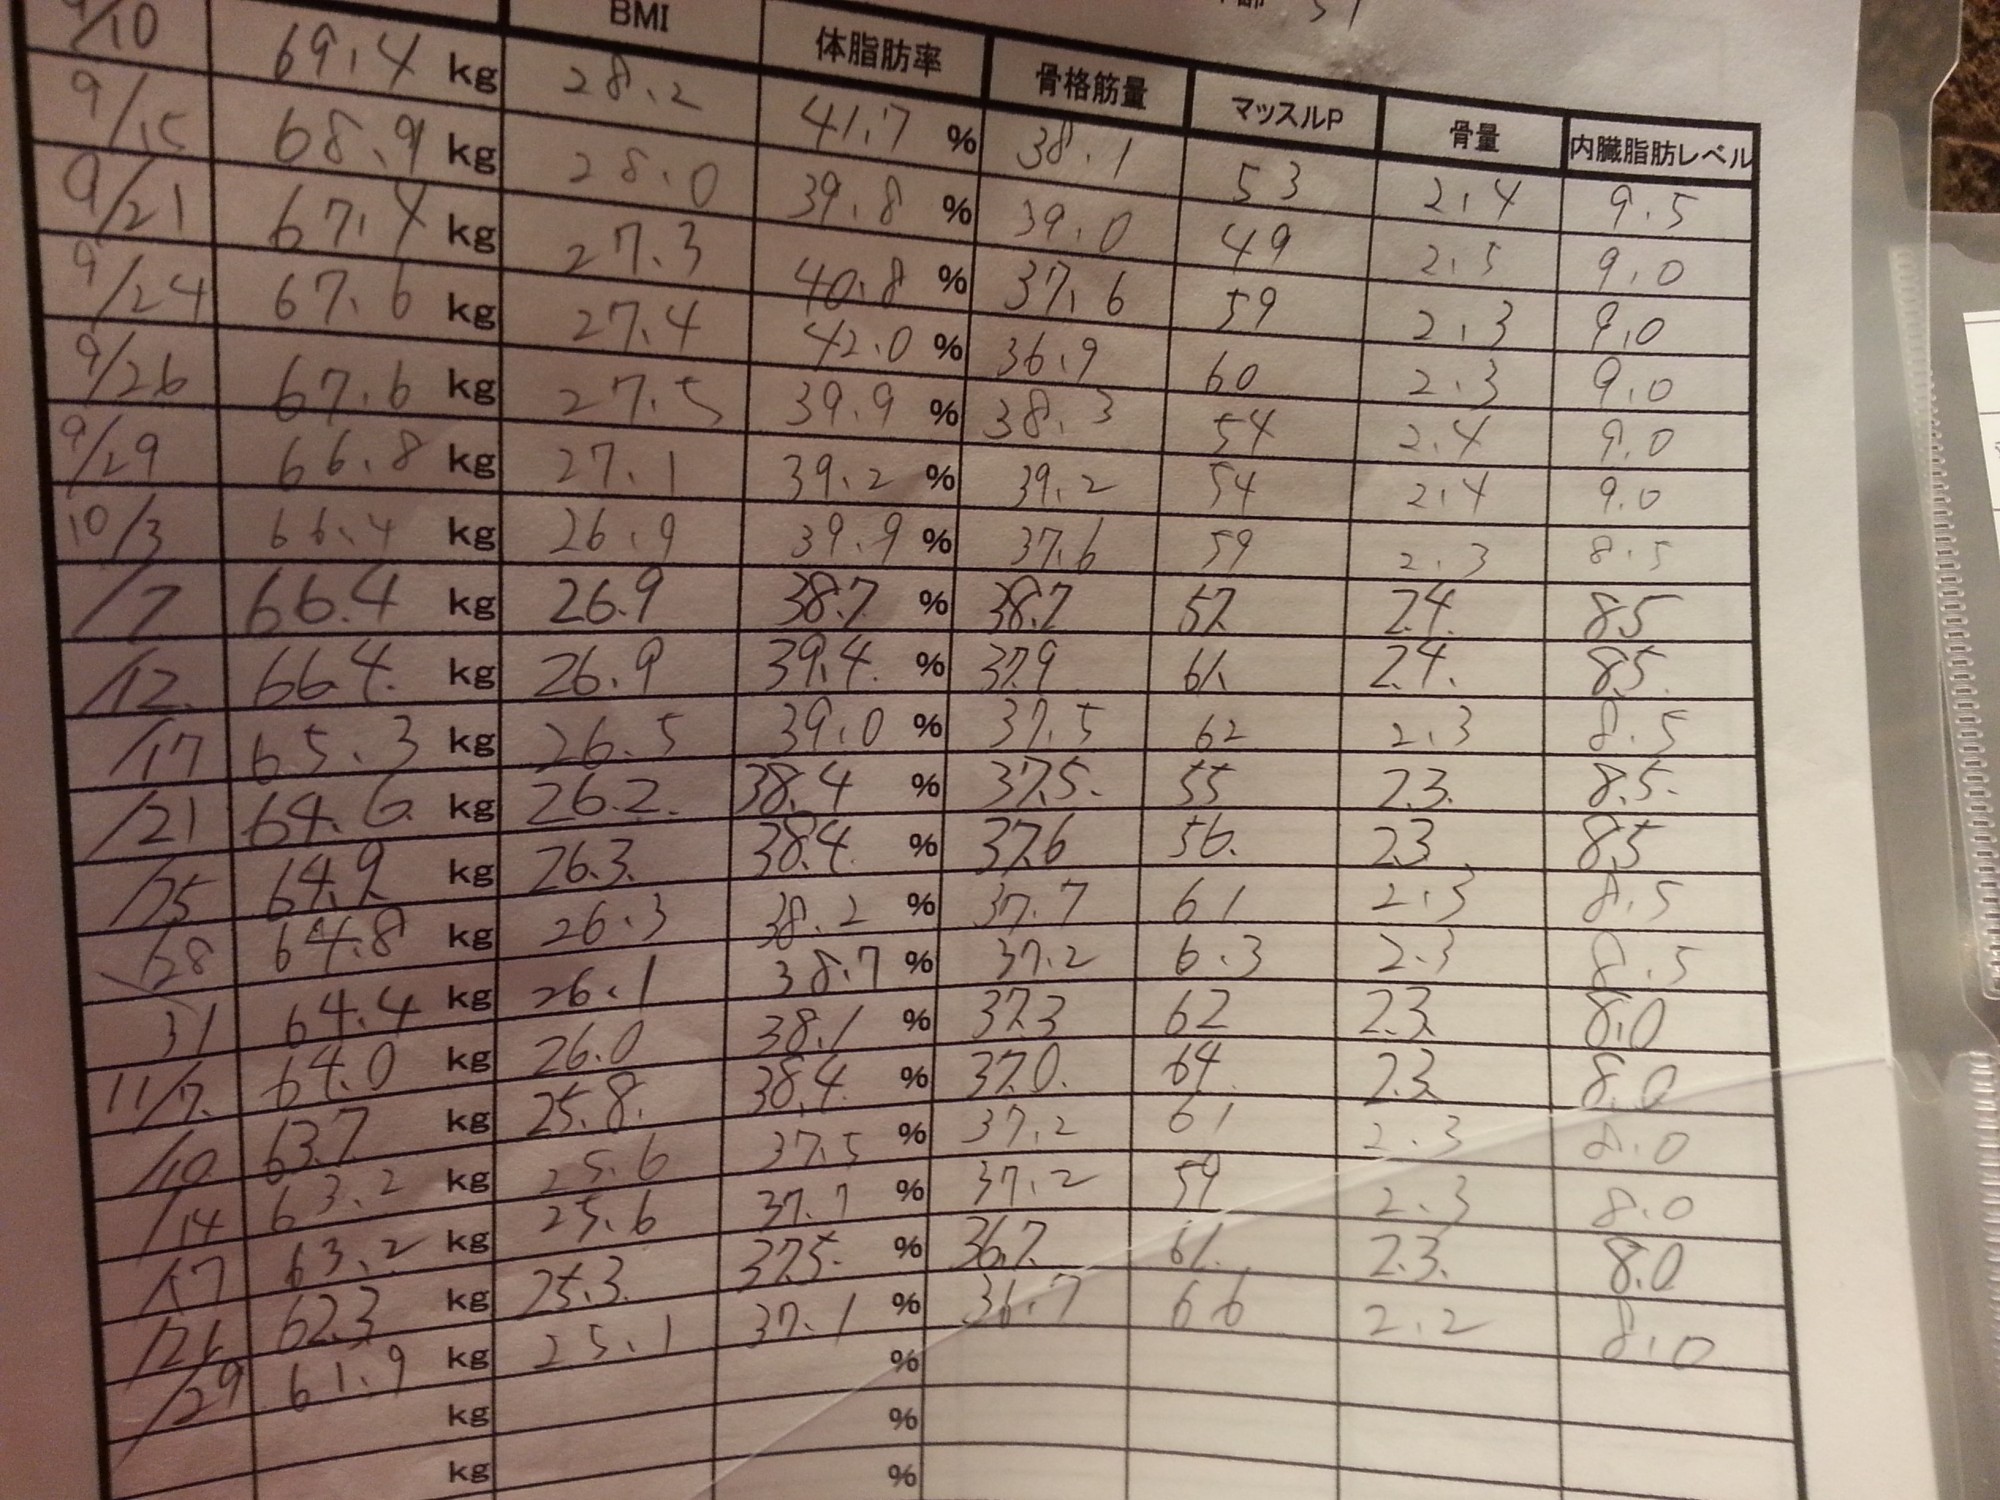 BMI 体脂肪率 骨格筋量 マッスルP 骨量 内臓脂肪レベル
9/10 69.4 kg 28.2 41.7 % 38.1 53 2.4 9.5
9/15 68.9 kg 28.0 39.8 % 39.0 49 2.5 9.0
9/21 67.4 kg 27.3 40.8 % 37.6 59 2.3 9.0
9/24 67.6 kg 27.4 42.0 % 36.9 60 2.3 9.0
9/26 67.6 kg 27.5 39.9 % 38.3 54 2.4 9.0
9/29 66.8 kg 27.1 39.2 % 39.2 54 2.4 9.0
10/3 66.4 kg 26.9 39.9 % 37.6 59 2.3 8.5
/7 66.4 kg 26.9 38.7 % 38.7 57 2.4 8.5
/12 66.4 kg 26.9 39.4 % 37.9 61 2.4 8.5
/17 65.3 kg 26.5 39.0 % 37.5 62 2.3 8.5
/21 64.6 kg 26.2 38.4 % 37.5 55 2.3 8.5
/25 64.9 kg 26.3 38.4 % 37.6 56 2.3 8.5
/28 64.8 kg 26.3 38.2 % 37.7 61 2.3 8.5
31 64.4 kg 26.1 38.7 % 37.2 6.3 2.3 8.5
11/7 64.0 kg 26.0 38.1 % 37.3 62 2.3 8.0
/10 63.7 kg 25.8 38.4 % 37.0 64 2.3 8.0
/14 63.2 kg 25.6 37.5 % 37.2 61 2.3 8.0
/17 63.2 kg 25.6 37.7 % 37.2 59 2.3 8.0
/26 62.3 kg 25.3 37.5 % 36.7 61 2.3 8.0
/29 61.9 kg 25.1 37.1 % 36.7 66 2.2 8.0
kg %
kg %
%